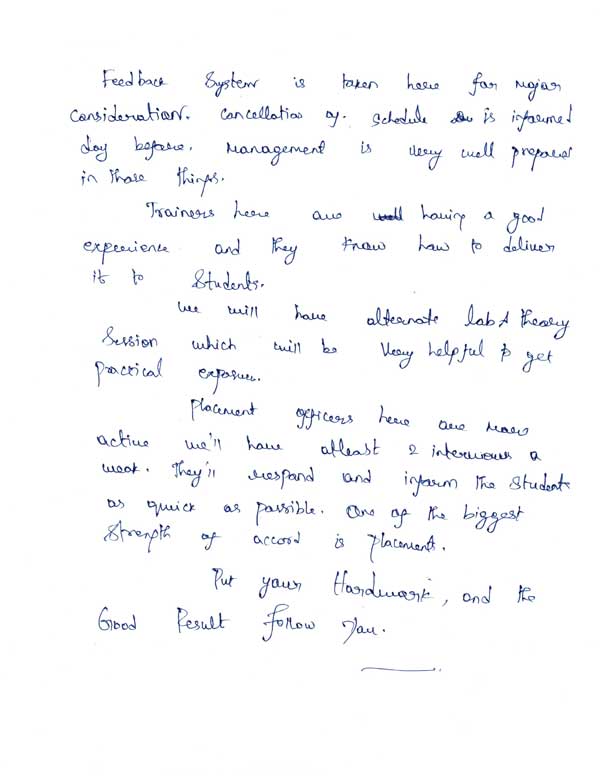 Feedback System is taken here for major
consideration. Cancellation of. Schedule is informed
day before. Management is very well prepared
in those things.
Trainers here are well having a good
experience and they know how to deliver
it to Students.
We will have alternate lab & theory
Session which will be very helpful to get
practical exposure.
Placement officers here are more
active we'll have atleast 2 interviews a
week. They'll respond and inform the students
as quick as possible. One of the biggest
Strength of accord is placements.
Put your Hardwork, and the
Good Result Follow You.